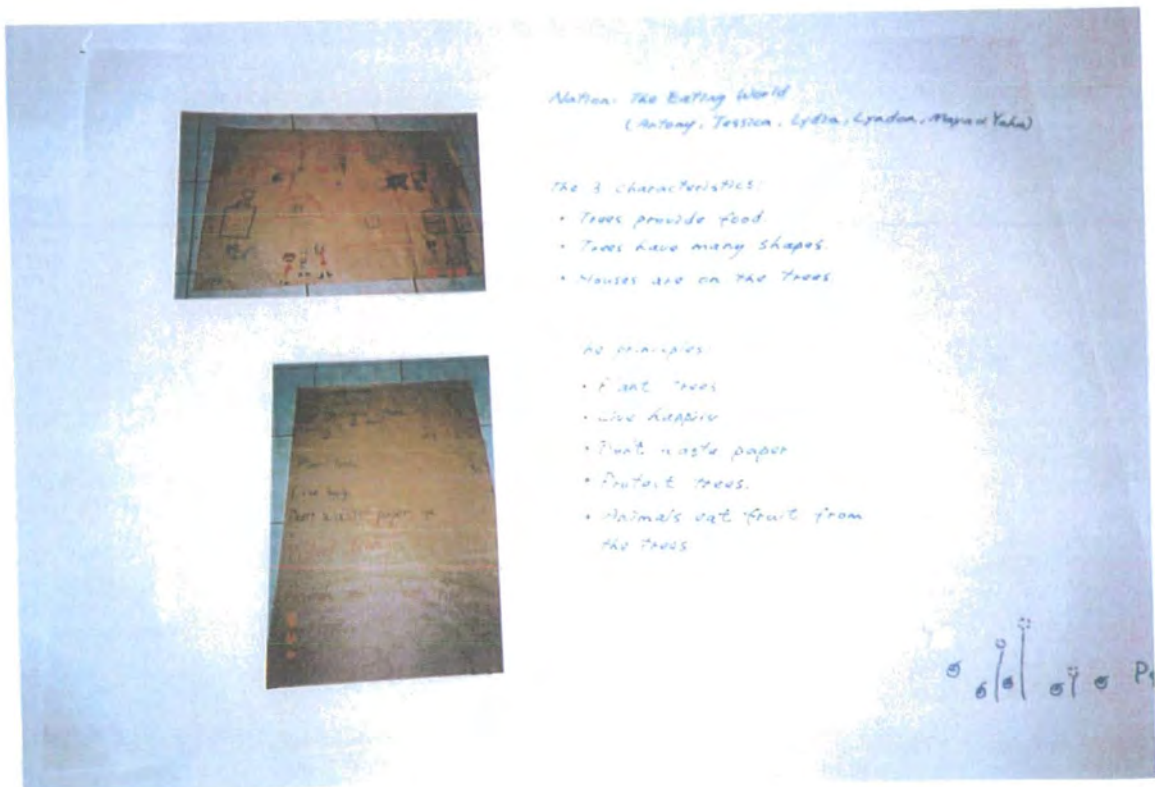 Nation: The Eating World
(Antony, Jessica, Lydia, Lyndon, Maya & Yaha)
The 3 characteristics:
• Trees provide food.
• Trees have many shapes.
• Houses are on the trees.
he principles:
• Plant Trees
• Live happily
• Don't waste paper
• Protect trees.
• Animals eat fruit from
the trees
Plant trees
Live
Dont waste paper
Protect trees